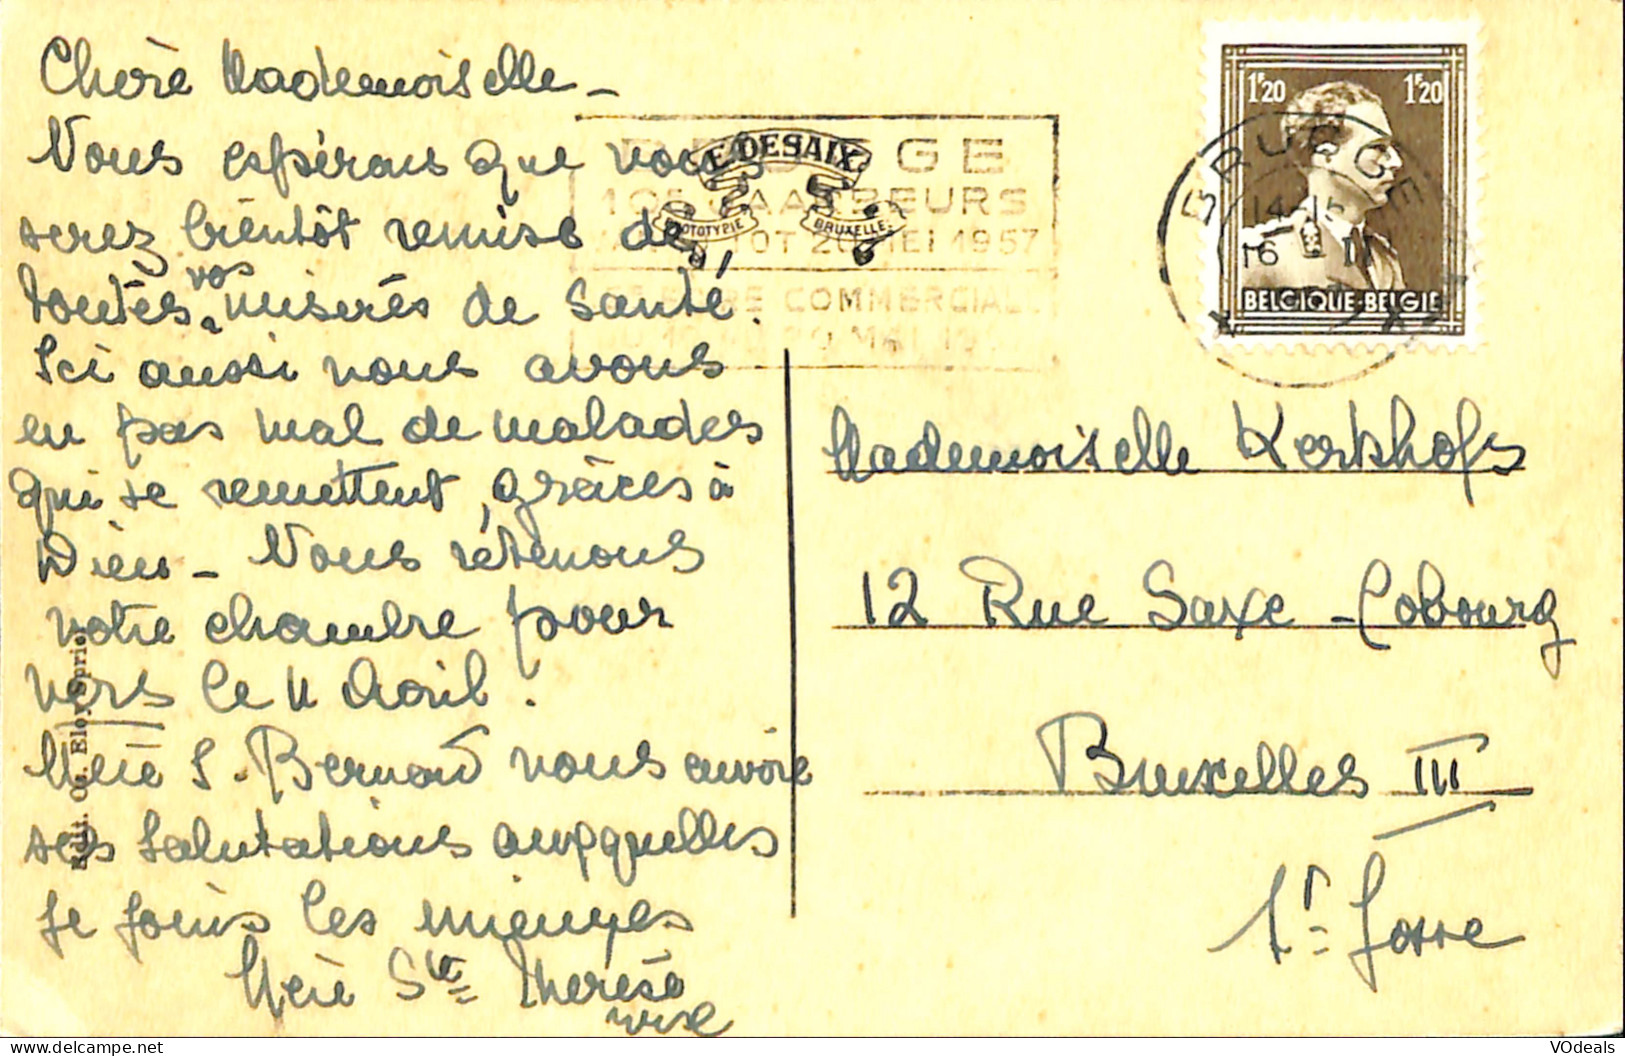 Chère Mademoiselle –
Nous espérons que vous
serez bientôt remise de
toutes vos misères de santé.
Ici aussi nous avons
en pas mal de malades
qui se remettent, grâces à
Dieu – Nous retenons
votre chambre pour
vers le 11 Avril.
Mère S. Bernard vous envoie
ses salutations auxquelles
je joins les miennes
Mère Ste Thérèse
Edit. Co. Eloy Sprie.
E. DESAIX
BRUXELLES
BRUGGE
JAARBEURS
TOT 20 MEI 1957
COMMERCIALE
20 MAI 19
1F20 1F20
BELGIQUE-BELGIE
BRUGGE
14-15
16 II
Mademoiselle Kerkhofs
12 Rue Saxe-Cobourg
Bruxelles III
St Josse
VOdeals